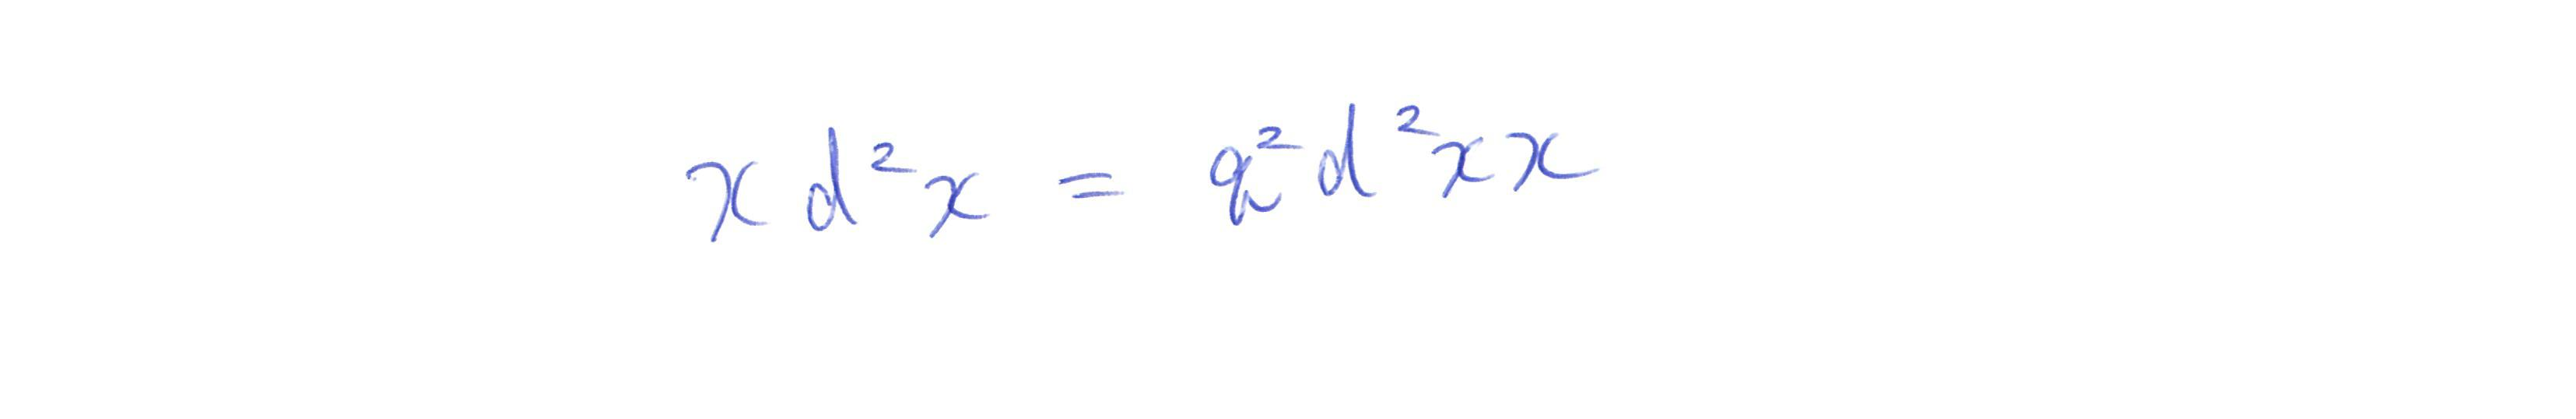 x d²x = q²d²xx